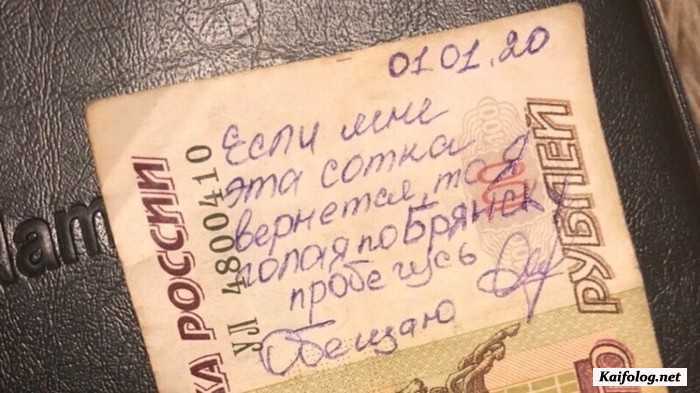 01.01.20
Если мне
эта сотка
вернется, то я
голая по Брянску
пробегусь
Обещаю
КА РОССИИ
УЛ 4800410
РУБЛЕЙ
Nam
Kaifolog.net